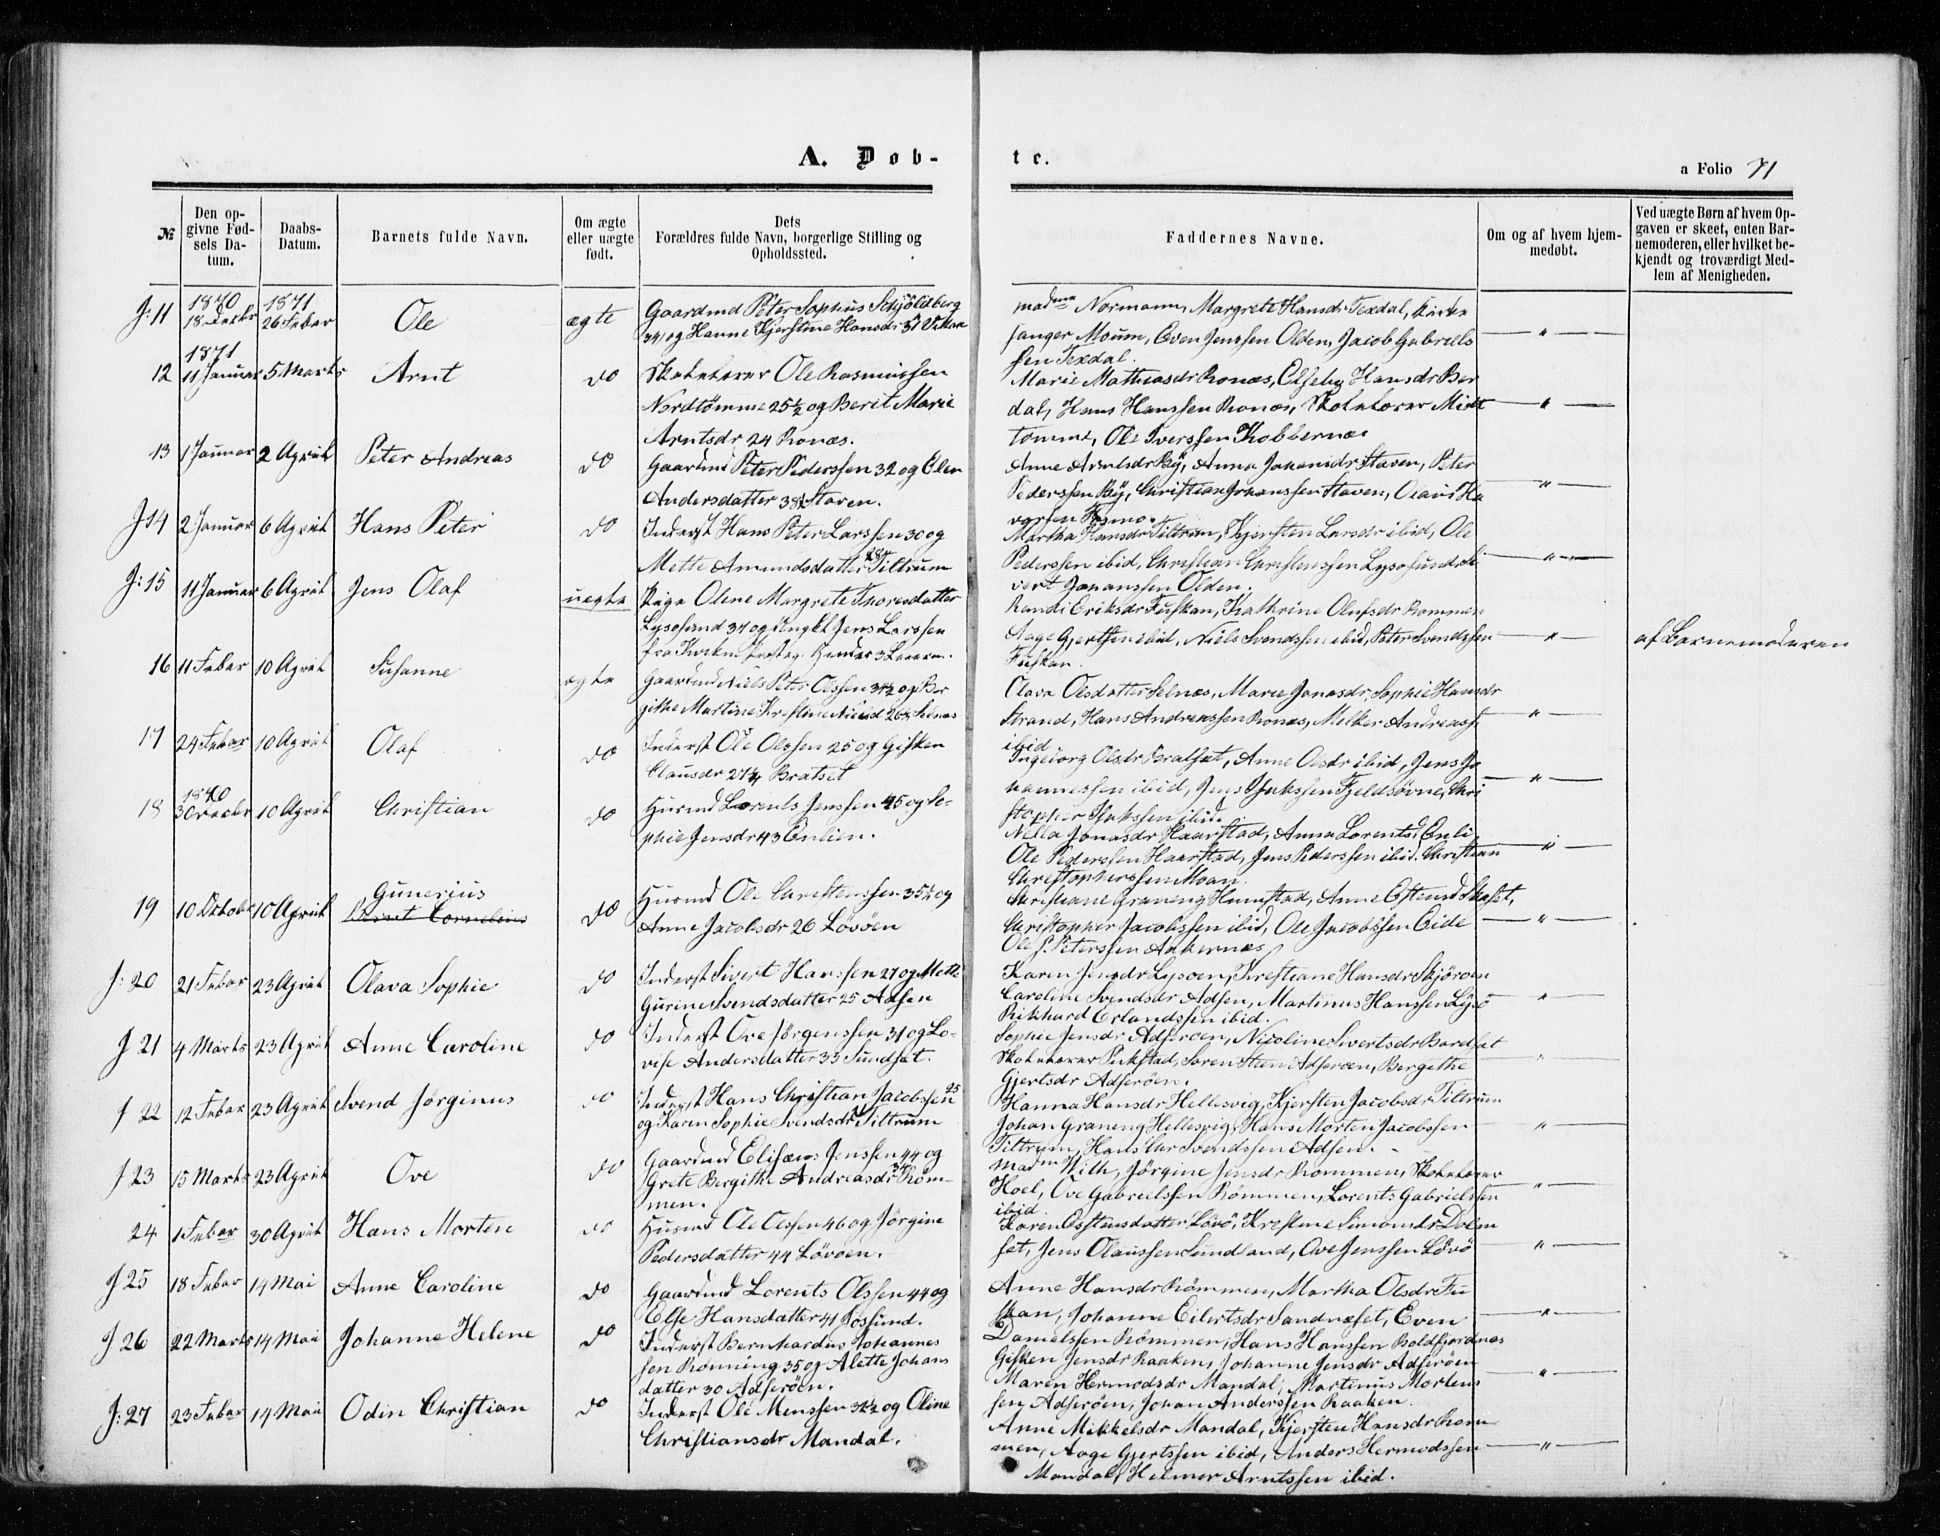 A. Døb-
te.
a Folio 71
№
Den op-
givne Fød-
sels Da-
tum.
Daabs-
Datum.
Barnets fulde Navn.
Om ægte
eller uægte
født.
Dets
Forældres fulde Navn, borgerlige Stilling og
Opholdssted.
Faddernes Navne.
Om og af hvem hjem-
medøbt.
Ved uægte Børn af hvem Op-
gaven er skeet, enten Bar-
nemoderen, eller hvilket be-
kjendt og troværdigt Med-
lem af Menigheden.
J: 11
1870
18 Decbr
1871
26 Febar
Ole
ægte
Gaardmd Peter Sophus Schjöldberg
34 og Hanne Kjerstine Hansdr 37
Madme Normann, Margrete Hansdr Texdal, Kirke
sanger Moum, Even Jenssen Olden, Jacob Gabriels
sen Texdal.
12
1871
11 Januar
5 Marts
Arnt
do
Skolelærer Ole Rasmussen
Nordtømme 25½ og Berit Marie
Arntsdr 24 Ronæs.
Marie Mathiasdr Ronæs, Elseby Hansdr Ber
dal, Hans Hanssen Ronæs, Skolelærer Midt
tømme, Ole Iverssen Kobbernæs
13
1 Januar
2 April
Peter Andreas
do
Gaardmd Peter Pederssen 32 og Elen
Andersdatter 38½ Staven.
Anne Arntsdr By, Anna Johansdr Staven, Peter
Pederssen By, Christian Johanssen Staven, Olaus Ha
J 14
2 Januar
6 April
Hans Peter
do
Inderst Hans Peter Larssen 30 og
Mette Amundsdatter Tiltrum
Martha Hansdr Tiltrum, Kjersten Larsdr ibid, Ole
Pederssen ibid, Christian Christenssen Lysøsund, Si
vert Johanssen Olden.
J: 15
11 Januar
6 April
Jens Olaf
uægte
Pige Olene Margrete Thoresdatter
Lysøsund 37 og Ungkl Jens Larssen
Randi Eriksdr Fuskan, Kathrine Olufsdr Rømmen
Aage Gjertsen ibid, Niels Svendssen ibid, Peter Svendssen
Fuskan.
af Barnemoderen
16
11 Febar
10 April
Susanne
ægte
Gaardmd Niels Peter Olssen 34½ og Ber
githe Martine Kristine
Olava Olsdatter Selnæs, Marie Jonasdr, Sophie Hansdr
Strand, Hans Andreassen Ronæs, Melker Andreass
ibid
17
24 Febar
10 April
Olaf
do
Inderst Ole Olssen 25 og Gisken
Clausdr 27¼ Bratset
Ingeborg Olsdr Bratset, Anne Olsdr ibid, Jens Jo
hannessen ibid, Jens Isakssen Fjeldsøvne, Chri
stopher Isakssen ibid.
18
1870
30 Decbr
10 April
Christian
do
Husmd Lorents Jenssen 45 og So-
phie Jensdr 43 Enlien.
Nella Jonasdr Haarstad, Anna Lorentsd Enli
Ole Pederssen Haarstad, Jens Pederssen ibid, Christian
Christopherssen Moan.
19
10 Oktobr
10 April
Gunerius
Bernt Cornelius
do
Husmd Ole Christenssen 35½ og
Anne Jacobsdr 26 Løvøen
Christiane Graneng Humstad, Anne Estensd Skaset,
Christopher Jacobssen ibid, Ole Jacobssen Eide
Ole P. Peterssen Ankernæs
J: 20
21 Febar
23 April
Olava Sophie
do
Inderst Sivert Hanssen 27 og Mette
Gurine Svendsdatter 25 Adsen
Karen Jensdr Lysøen, Kristiane Hansdr Skjöroen
Caroline Svendsdr Adsen, Martinus Hanssen Lysö
Rikhard Erlandssen ibid.
J 21
4 Marts
23 April
Anne Caroline
do
Inderst Ove Jørgenssen 31 og Lo-
vise Andersdatter 33 Sundset.
Sophie Jensdr Adserøen, Nicoline Sivertsdr Bardset
Skolelærer Pukstad, Søren Steen Adserøen, Bergithe
Gjertsdr Adserøen.
J 22
12 Febar
23 April
Svend Jørginus
do
Inderst Hans Christian Jacobssen 25
og Karen Sophie Svendsdr Tiltrum
Hanna Hansdr Hellesvig, Kjersten Jacobsdr Tiltrum
Johan Graneng Hellesvig, Hans Morten Jacobssen
Tiltrum, Hans Chr Svendssen Adsen.
J 23
15 Marts
23 April
Ove
do
Gaardmd Elisæus Jenssen 44 og
Grete Bergithe Andreasdr 34 Røm-
men.
Madm Wilh, Jørgine Jensdr Rømmen, Skolelærer
Hoel, Ove Gabrielssen Rømmen, Lorents Gabrielssen
ibid
24
1 Febar
30 April
Hans Morten
do
Husmd Ole Olssen 46 og Jørgine
Pedersdatter 44 Løvøen.
Karen Ostensdatter Løvö, Kristine Simonsdr Dolm
set, Jens Olaussen Sundland, Ove Jenssen Løvö
J 25
18 Febar
14 Mai
Anne Caroline
do
Gaardmd Lorents Olssen 44 og
Else Hansdatter 41 Jøssund.
Anne Hansdr Rømmen, Martha Olsdr Fu
skan, Johanne Eilertsdr Sandnæset, Even
Danielssen Rømmen, Hans Hanssen Boldfjordnæs
J 26
22 Marts
14 Mai
Johanne Helene
do
Inderst Bernhardus Johannes
sen Rønning 35 og Alette Johans
datter 30 Adserøen.
Gisken Jensdr Raaken, Johanne Jensdr Adserøen
Maren Hermodsdr Mandal, Martinus Mortens
sen Adserøen, Johan Anderssen Raaken.
J: 27
23 Febar
14 Mai
Odin Christian
do
Inderst Ole Menssen 32½ og Oline
Christiansdr Mandal.
Anne Mikkelsdr Mandal, Kjersten Hansdr Røm
men, Aage Gjertssen ibid, Anders Hermodssen
Mandal, Helmer Arntssen ibid.